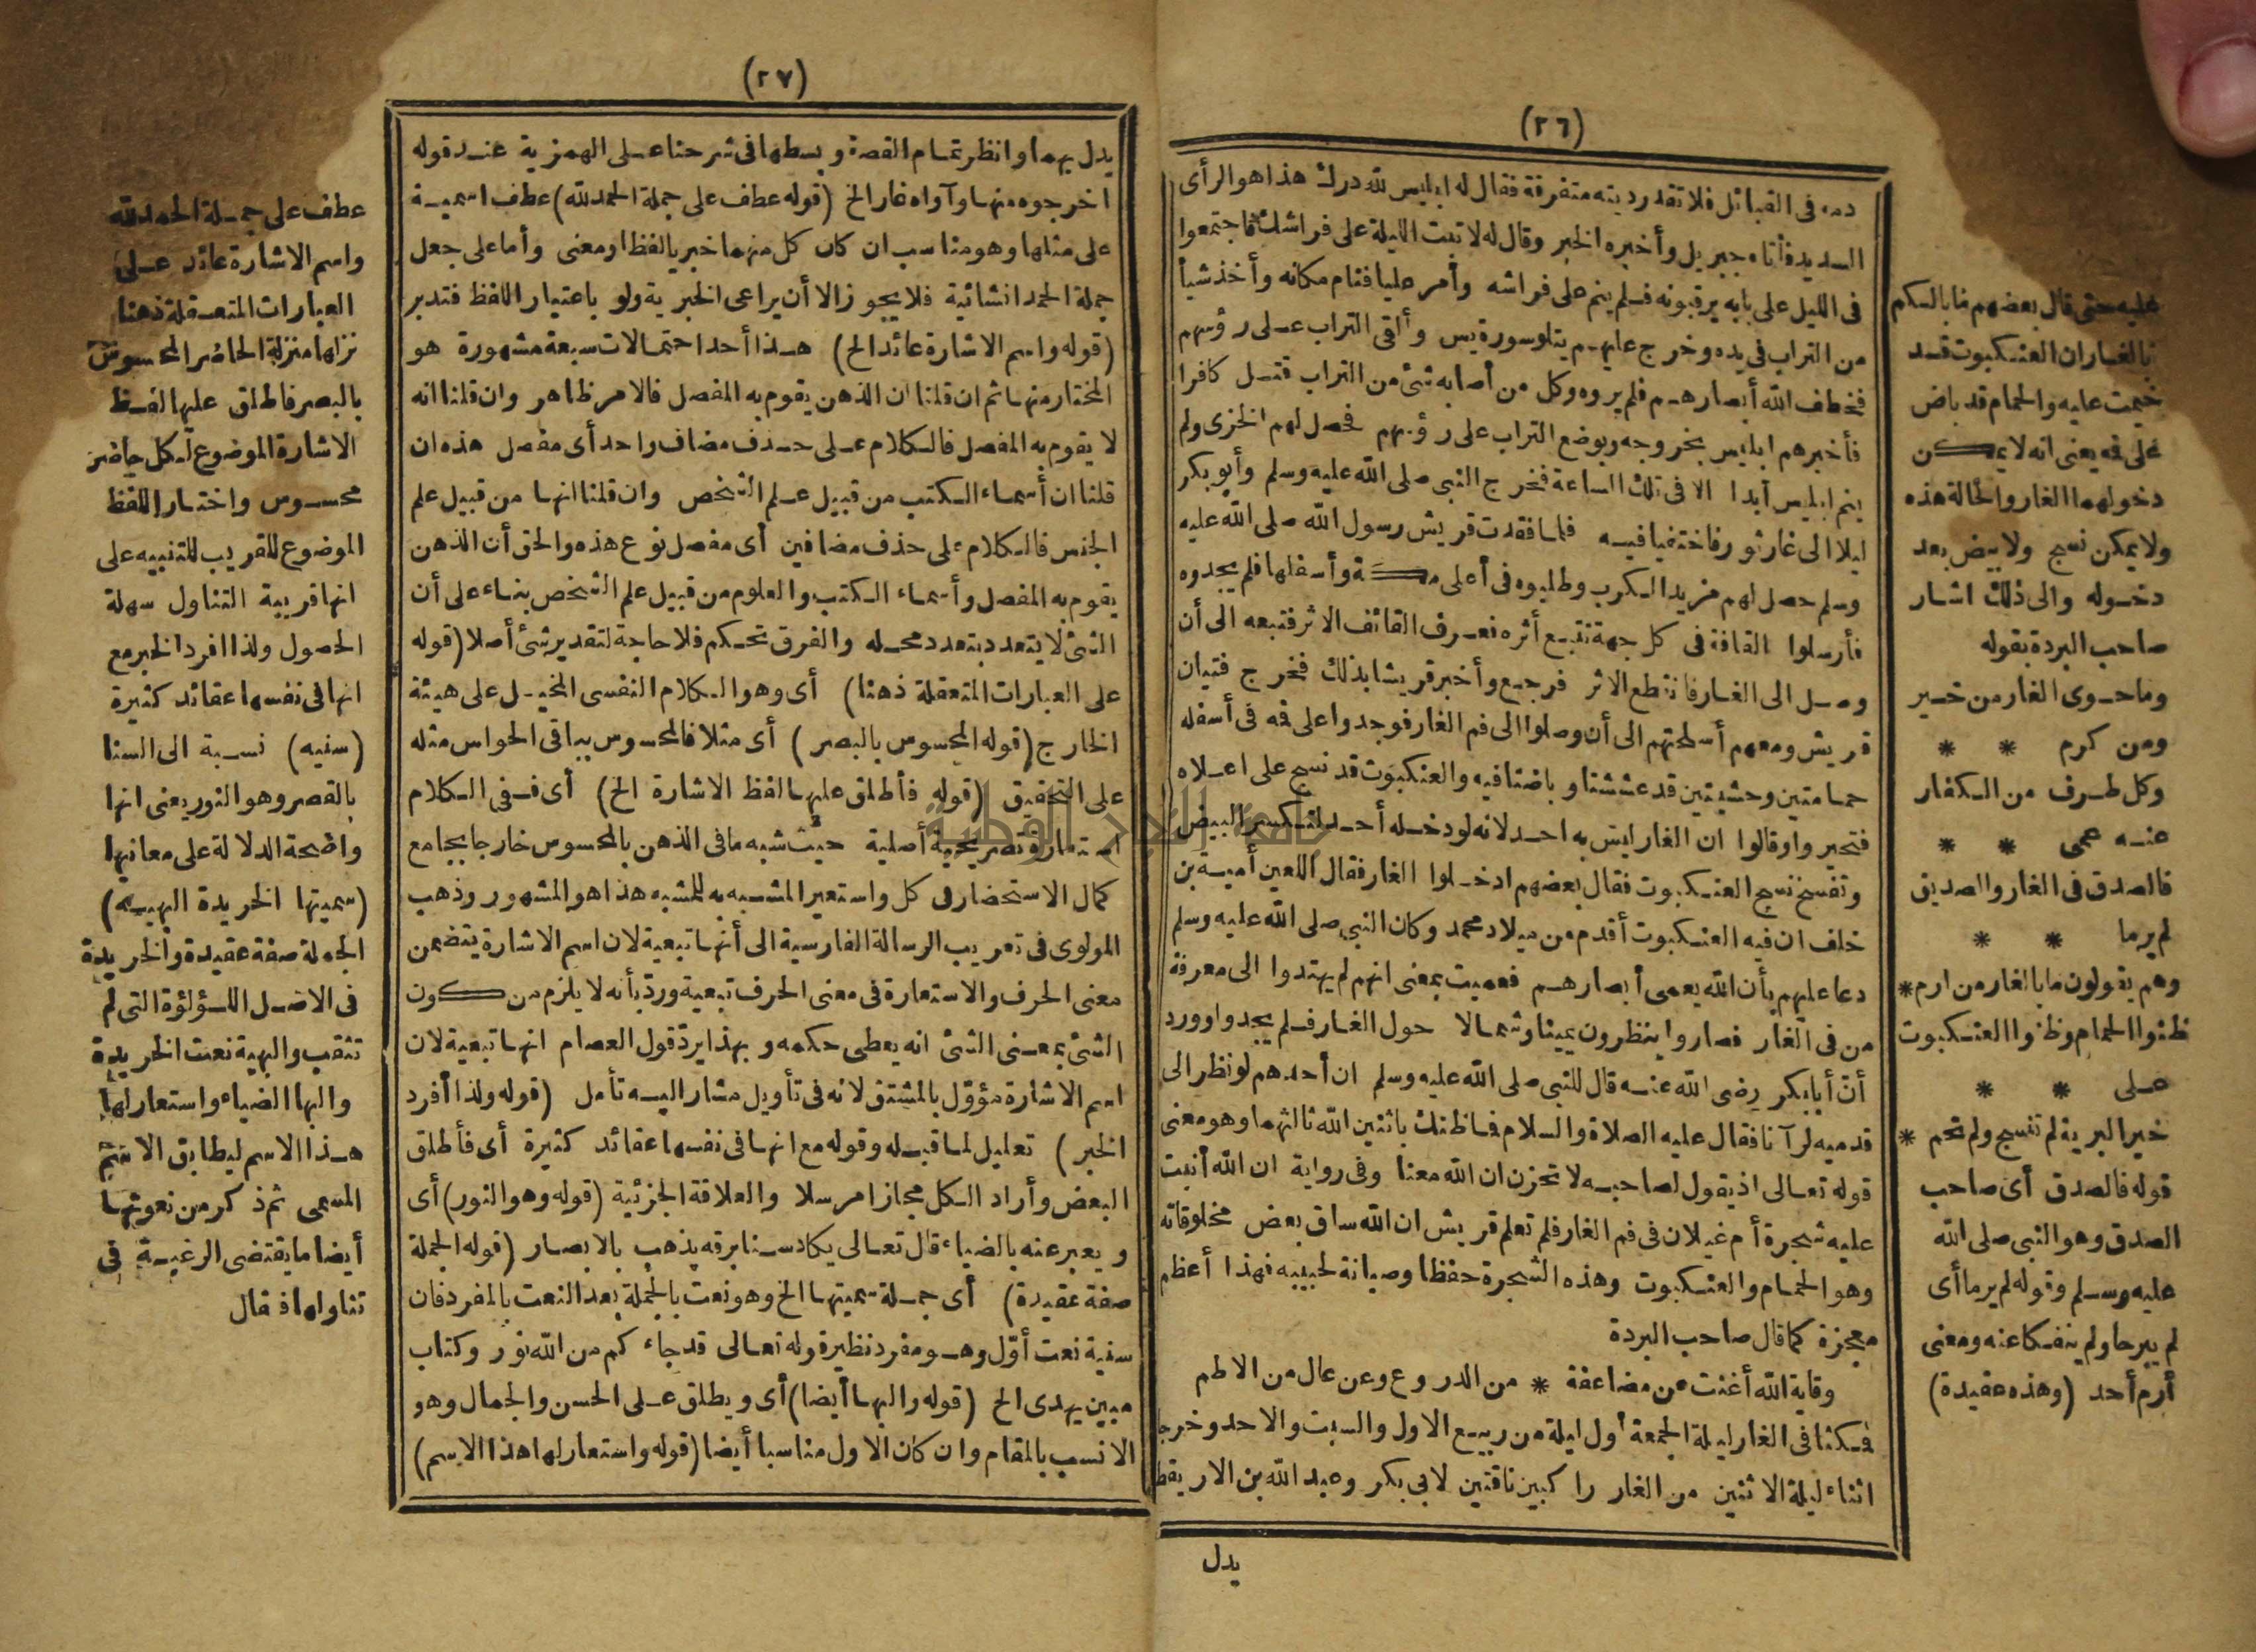 (٢٦)
دمه فى القبائل فلا تقدر ديته متفرقة فقال له ابليس لله درك هذا هو الرأى
السديد فأتاه جبريل وأخبره الخبر وقال له لا تبت الليلة على فراشك فاجتمعوا
فى الليل على بابه يرقبونه فلم ينم على فراشه وأمر عليا فنام مكانه وأخذ شيأ
من التراب فى يده وخرج عليهم يتلو سورة يس وألقى التراب على رؤسهم
فخطف الله أبصارهم فلم يروه وكل من أصابه شئ من التراب قتل كافرا
فأخبرهم ابليس بخروجه وبوضع التراب على رؤسهم فحصل لهم الخزى ولم
ينم ابليس أبدا الا فى تلك الساعة فخرج النبى صلى الله عليه وسلم وأبو بكر
ليلا الى غار ثور فاختفيا فيه فلما فقدت قريش رسول الله صلى الله عليه
وسلم حصل لهم مزيد الكرب وطلبوه فى أعلى مكة وأسفلها فلم يجدوه
فأرسلوا القافة فى كل جهة تتبع أثره فعرف القائف الاثر فتبعه الى أن
وصل الى الغار فانقطع الاثر فرجع وأخبر قريشا بذلك فخرج فتيان
قريش ومعهم أسلحتهم الى أن وصلوا الى فم الغار فوجدوا على فه فى أسفله
حمامتين وحشيتين قد عششتا وباضتا فيه والعنكبوت قد نسج على اعلاه
فتحيروا وقالوا ان الغار ليس به احد لانه لو دخله أحد لتكسر البيض
وتفسخ نسج العنكبوت فقال بعضهم ادخلوا الغار فقال اللعين أمية بن
خلف ان فيه العنكبوت أقدم من ميلاد محمد وكان النبى صلى الله عليه وسلم
دعا عليهم بأن الله يعمى أبصارهم فعميت بمعنى انهم لم يهتدوا الى معرفة
من فى الغار فصاروا ينظرون يمينا وشمالا حول الغار فلم يجدوا وورد
أن أبا بكر رضى الله عنه قال للنبى صلى الله عليه وسلم ان أحدهم لو نظر الى
قدميه لرآنا فقال عليه الصلاة والسلام فما ظنك باثنين الله ثالثهما وهو معنى
قوله تعالى اذ يقول لصاحبه لا تحزن ان الله معنا وفى رواية ان الله أنبت
عليه شجرة أم غيلان فى فم الغار فلم تعلم قريش ان الله ساق بعض مخلوقاته
وهو الحمام والعنكبوت وهذه الشجرة حفظا وصيانة لحبيبه فهذا أعظم
معجزة كما قال صاحب البردة
وقاية الله أغنت عن مضاعفة * من الدروع وعن عال من الاطم
فمكثا فى الغار ليلة الجمعة أول ليلة من ربيع الاول والسبت والاحد وخرجا
اثناء ليلة الاثنين من الغار راكبين ناقتين لابى بكر وعبد الله بن الاريقط
يدل
عليه حتى قال بعضهم ما بالكم
بالغار ان العنكبوت قد
خيمت عليه والحمام قد باض
على فه يعنى انه لا يمكن
دخولهما الغار والحالة هذه
ولا يمكن نسج ولا بيض بعد
دخوله والى ذلك اشار
صاحب البردة بقوله
وما حوى الغار من خير
ومن كرم * *
وكل طرف من الكفار
عنه عمى * *
فالصدق فى الغار والصديق
لم يرما * *
وهم يقولون ما بالغار من ارم *
ظنوا الحمام وظنوا العنكبوت
على * *
خير البرية لم تنسج ولم تحم *
قوله فالصدق أى صاحب
الصدق وهو النبى صلى الله
عليه وسلم وقوله لم يرما أى
لم يبرحا ولم ينفكا عنه ومعنى
أرم أحد (وهذه عقيدة)
(٢٧)
يدل بهما وانظر تمام القصة وبسطها فى شرحنا على الهمزية عند قوله
اخرجوه منها وآواه غار الخ (قوله عطف على جملة الحمد لله) عطف اسمية
على مثلها وهو مناسب ان كان كل منهما خبريا لفظا ومعنى وأما على جعل
جملة الحمد انشائية فلا يجوز الا أن يراعى الخبرية ولو باعتبار اللفظ فتدبر
(قوله واسم الاشارة عائد الخ) هذا أحد احتمالات سبعة مشهورة هو
المختار منها ثم ان قلنا ان الذهن يقوم به المفصل فالامر ظاهر وان قلنا انه
لا يقوم به المفصل فالكلام على حذف مضاف واحد أى مفصل هذه ان
قلنا ان أسماء الكتب من قبيل علم الشخص وان قلنا انها من قبيل علم
الجنس فالكلام على حذف مضافين أى مفصل نوع هذه والحق أن الذهن
يقوم به المفصل وأسماء الكتب والعلوم من قبيل علم الشخص بناء على أن
الشئ لا يتعدد بتعدد محله والفرق تحكم فلا حاجة لتقدير شئ أصلا (قوله
على العبارات المتعقلة ذهنا) أى وهو الكلام النفسى المخيل على هيئة
الخارج (قوله المحسوس بالبصر) أى مثلا فالمحسوس بباقى الحواس مثله
على التحقيق (قوله فأطلق عليها لفظ الاشارة الخ) أى ففى الكلام
استعارة تصريحية أصلية حيث شبه ما فى الذهن بالمحسوس خارجا بجامع
كمال الاستحضار فى كل واستعير المشبه به للمشبه هذا هو المشهور وذهب
المولوى فى تعريب الرسالة الفارسية الى أنها تبعية لان اسم الاشارة يتضمن
معنى الحرف والاستعارة فى معنى الحرف تبعية وردّ بأنه لا يلزم من كون
الشئ بمعنى الشئ انه يعطى حكمه وبهذا يردّ قول العصام انها تبعية لان
اسم الاشارة مؤوّل بالمشتق لانه فى تأويل مشار اليه تأمل (قوله ولذا أفرد
الخبر) تعليل لما قبله وقوله مع انها فى نفسها عقائد كثيرة أى فأطلق
البعض وأراد الكل مجازا مرسلا والعلاقة الجزئية (قوله وهو النور) أى
ويعبر عنه بالضياء قال تعالى يكاد سنا برقه يذهب بالابصار (قوله الجملة
صفة عقيدة) أى جملة سميتها الخ وهو نعت بالجملة بعد النعت بالمفرد فان
سنية نعت أوّل وهو مفرد نظير قوله تعالى قد جاءكم من الله نور وكتاب
مبين يهدى الخ (قوله والبها أيضا) أى ويطلق على الحسن والجمال وهو
الانسب بالمقام وان كان الاول مناسبا أيضا (قوله واستعار لها هذا الاسم)
عطف على جملة الحمد لله
واسم الاشارة عائد على
العبارات المتعقلة ذهنا
نزلها منزلة الحاضر المحسوس
بالبصر فاطلق عليها لفظ
الاشارة الموضوع لكل حاضر
محسوس واختار اللفظ
الموضوع للقريب للتنبيه على
انها قريبة التناول سهلة
الحصول ولذا افرد الخبر مع
انها فى نفسها عقائد كثيرة
(سنيه) نسبة الى السنا
بالقصر وهو النور يعنى انها
واضحة الدلالة على معانيها
(سميتها الخريدة البهيه)
الجملة صفة عقيدة والخريدة
فى الاصل اللؤلؤة التى لم
تثقب والبهية نعت الخريدة
والبها الضياء واستعار لها
هذا الاسم ليطابق الاسم
المسمى ثم ذكر من نعوتها
أيضا ما يقتضى الرغبة فى
تناولها فقال